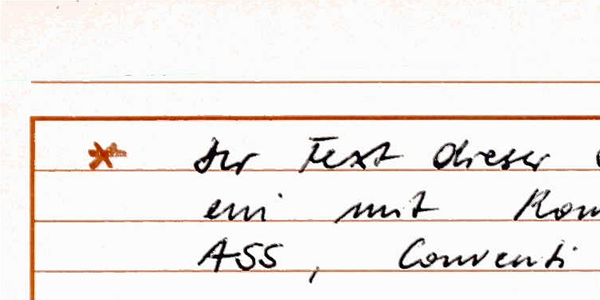 * der Text dieser
ein mit Kom
ASS, Conventi